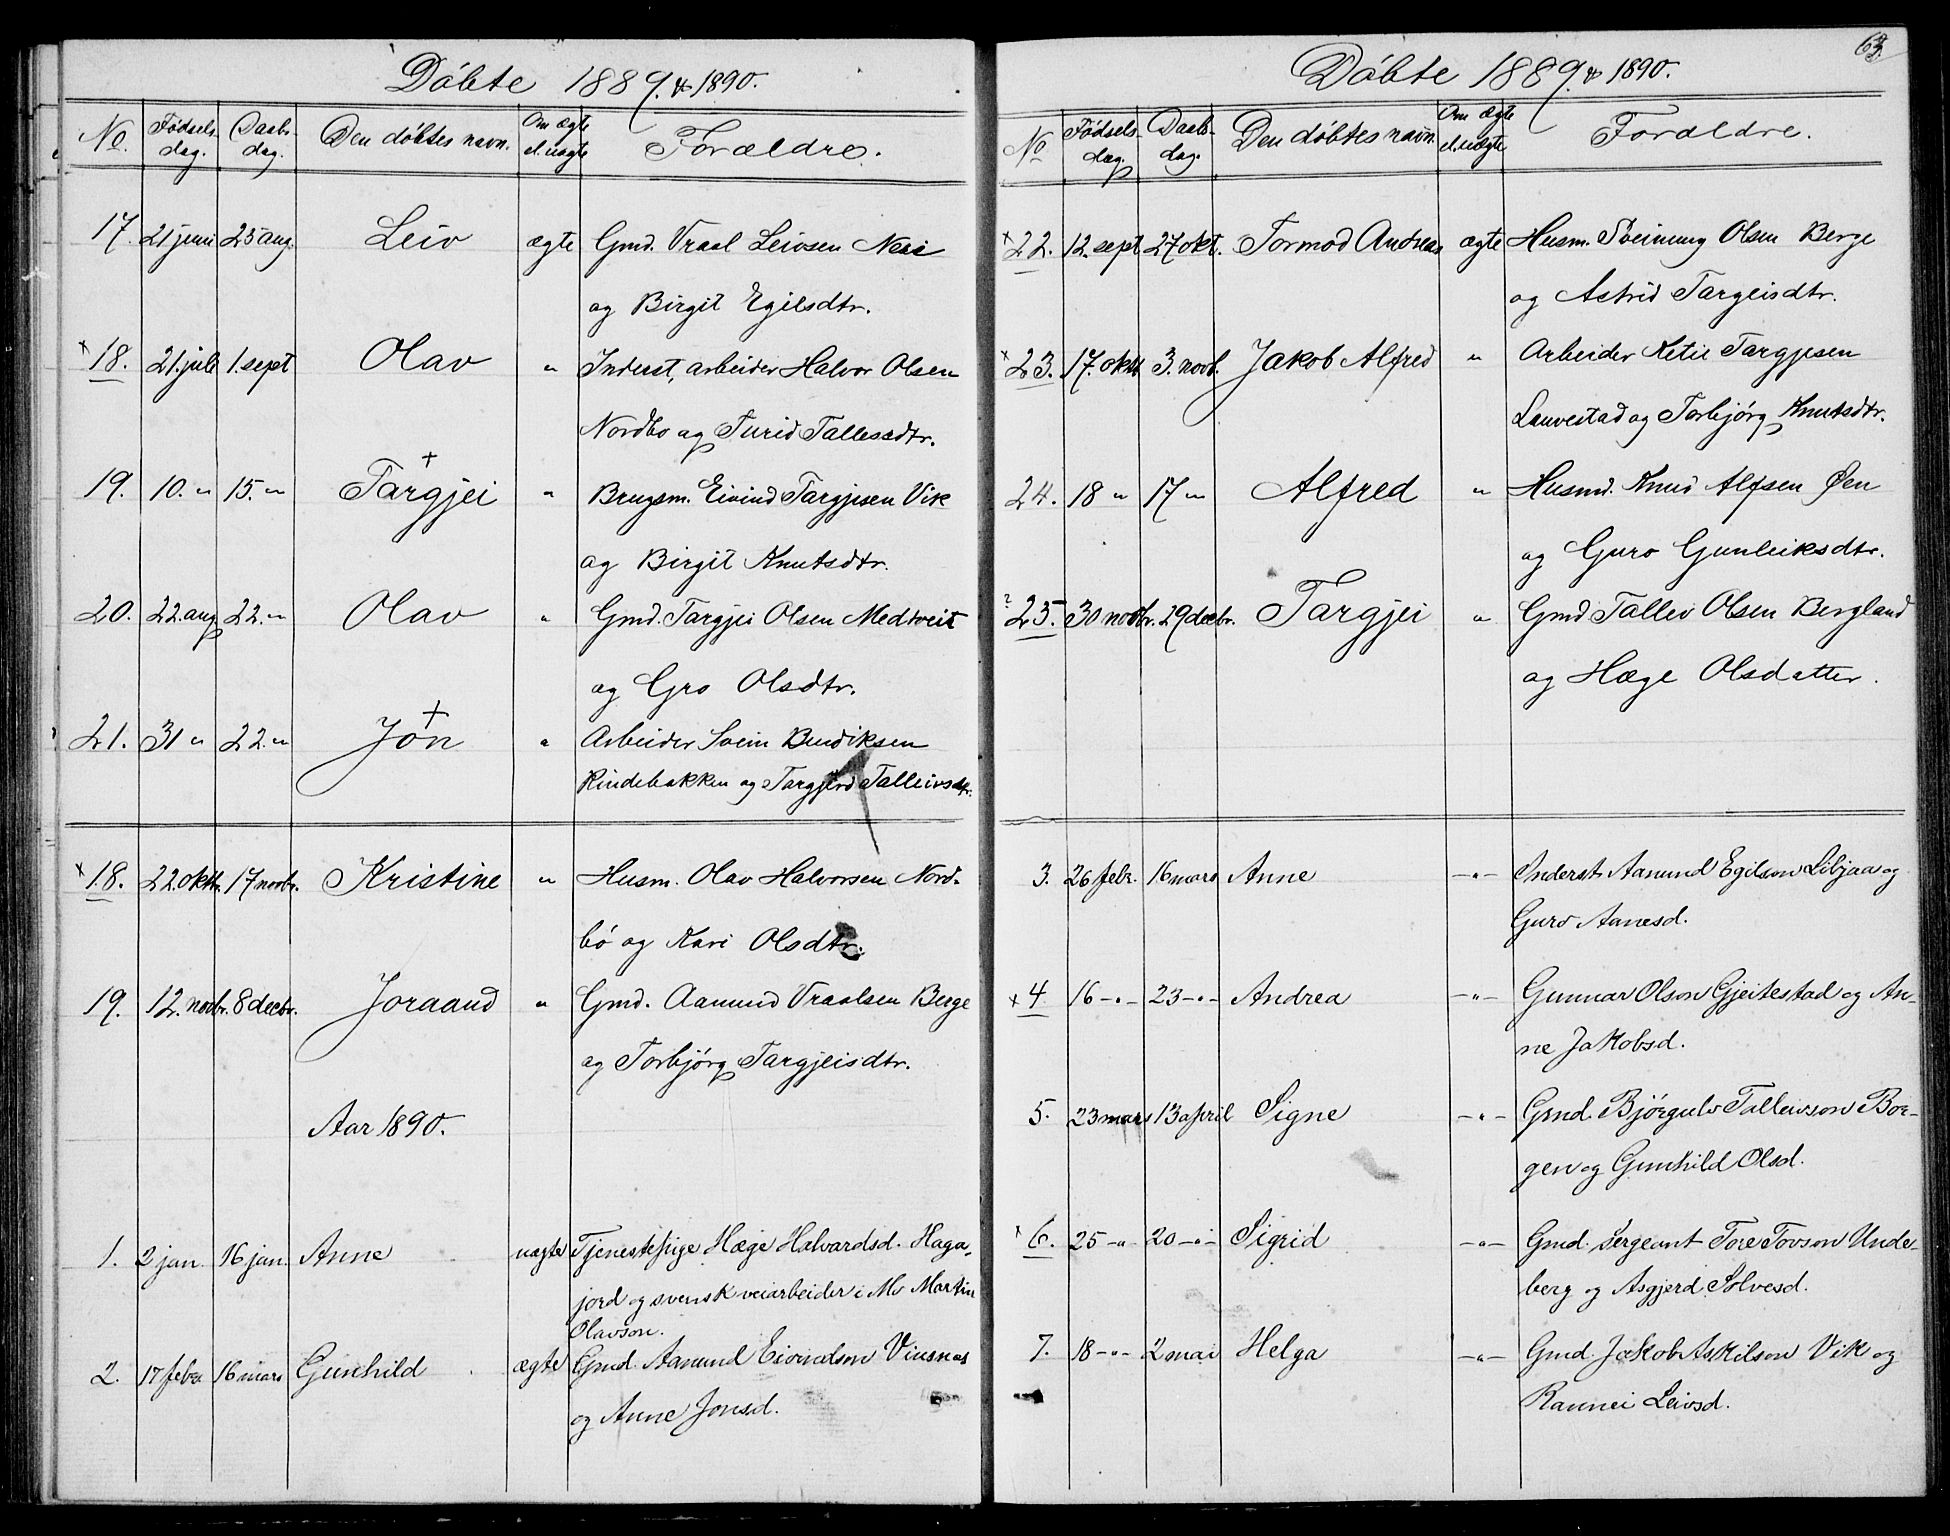 Döbte 1889. & 1890.
No. Fødsels-dag. Daabs-dag. Den döbtes navn. Om ægte el. uægte Forældre.
17. 21 juni 25 aug. Leiv ægte Gmd. Vraal Leivsen Nesi
og Birgit Egilsdtr.
×18. 21. juli 1. sept Olav " Inderst, arbeider Halvor Olsen
Nordbo og Turid Tallessdtr.
+
19. 10. " 15. " Targjei " Brugsm. Eivind Targjesen Vik
og Birgit Knutsdtr.
20. 22. aug 22. " Olav " Gmd. Targjei Olsen Medtveit
og Gro Olsdtr.
+
21. 31 " 22. " Jon " Arbeider Svein Bendiksen
Rindebakken og Targjerd Talleivsdtr.
×18. 22. oktbr. 17 novbr. Kristine " Husm. Olav Halvorsen Nord-
bö og Kari Olsdtr.
19. 12. novbr. 8 decbr. Joraand " Gmd. Aamund Vraalsen Berge
og Torbjörg Targjeisdtr.
Aar 1890.
1. 2 jan. 16 jan. Anne uægte Tjenestepige Hæge Halvardsd. Haga-
jord og svensk veiarbeider i Mo Martin
Olavson.
2. 17 febr 16 mars Gunhild ægte Gmd. Aamund Eivindson Vinsnes
og Anne Jonsd.
63
Döbte 1889. & 1890.
No Fødsels-dag. Daabs-dag. Den döbtes navn. Om ægte el. uægte Forældre.
×22. 12. sept 27 okt. Tormod Andreas ægte Husm. Sveinung Olsen Berge
og Astrid Targeisdtr.
×23. 17. oktb 3. novb. Jakob Alfred " Arbeider Ketil Targjesen
Lauvestad og Torbjörg Knutsdtr.
24. 18 " 17 " Alfred " Husmd. Knud Alfsen Øen
og Guro Gunleiksdtr.
?25. 30 novbr. 29 decbr. Targjei " Gmd Tallev Olsen Bergland
og Hæge Olsdatter.
3. 26 febr. 16 mars Anne -"- Inderst Aamund Egilson Libjaa og
Guro Aanesd.
×4 16 -"- 23 -"- Andrea -"- Gunnar Olson Gjeitestad og An-
ne Jakobsd.
5. 23 mars 13 april Signe -"- Gmd. Bjørgulv Talleivson Bor-
gen og Gunhild Olsd.
×6. 25 -"- 20 -"- Sigrid -"- Gmd. sergeant Tore Tovson Unde-
berg og Asgjerd Sølvesd.
7. 18 -"- 2 mai Helga -"- Gmd. Jakob Askilson Vik og
Rannei Leivsd.